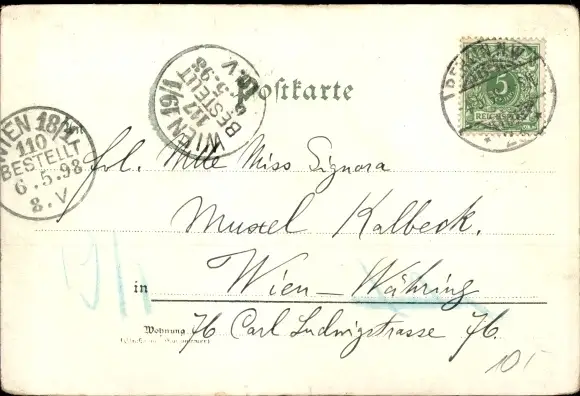 Postkarte
WIEN 19/1
117
BESTELLT
6.5.98
8.V
WIEN 18/1
110
BESTELLT
6.5.98
8.V
BERLIN N.W.
5
REICHSPOST
An
Frl. Mlle Miss Signora
Kalbeck.
in Wien–Währing
Wohnung
76 Carl Ludwigstrasse 76.
10